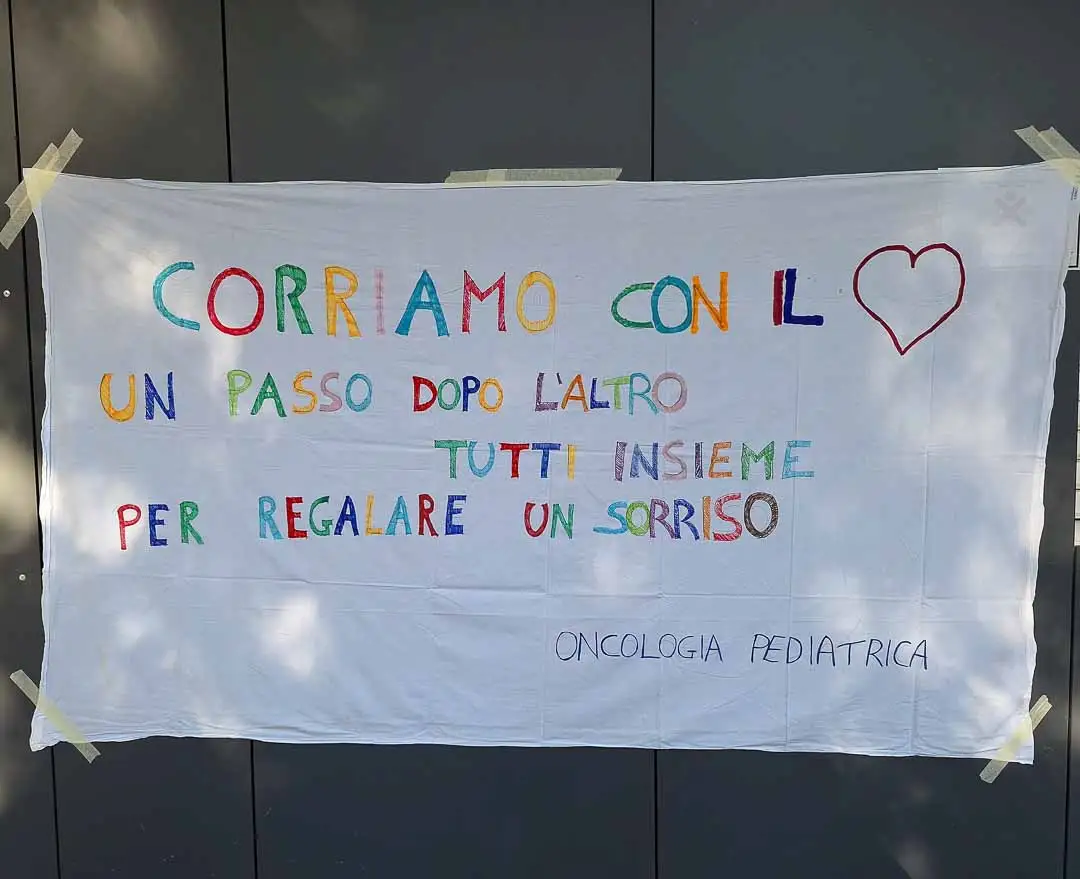 CORRIAMO CON IL
UN PASSO DOPO L'ALTRO
TUTTI INSIEME
PER REGALARE UN SORRISO
ONCOLOGIA PEDIATRICA